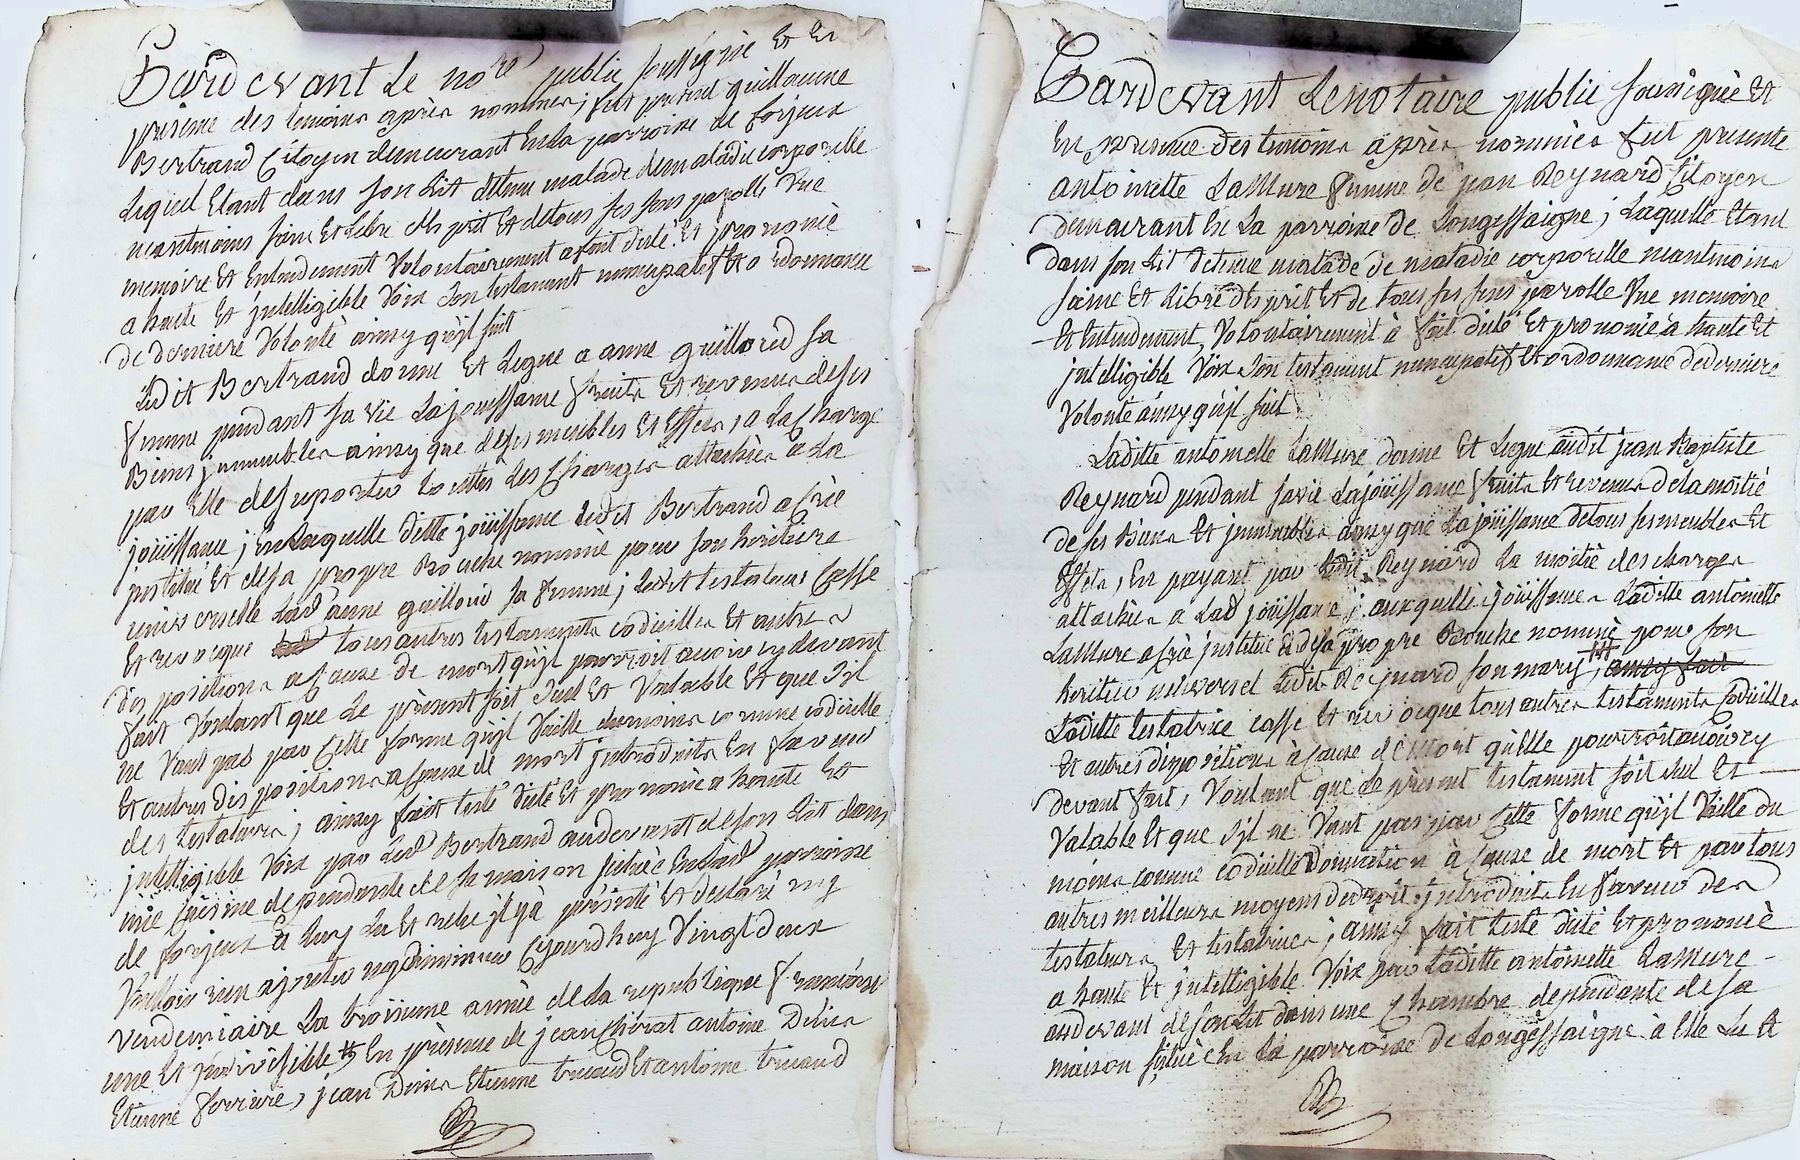 Pardevant Le no.re public soussigné Et En
présence des temoins après nommés, fut présent guillaume
Bertrand Citoyen demeurant En la parroisse de forjeux
Lequel Etant dans son Lit détenu malade de maladie corporelle
neantmoins sain Et Libre d'esprit Et de tous ses sens parolle vüe
memoire Et Entendement Volontairement a fait dicté Et prononcé
a haute Et jntelligible Voix son testament nuncupatif Et ordonnance
de derniere Volonté ainsy qu'jl suit
Ledit Bertrand donne Et Legue a anne guilloud sa
femme pendant sa vie La jouissance fruits Et revenus de ses
Biens jmmeubles ainsy que de ses meubles Et Effets, a La Charge
par Elle de supporter toutes Les Charges attachées a La
joüissance, En Laquelle ditte joüissance Ledit Bertrand a Créé
jnstitué Et de sa propre Bouche nommé pour son heritiere
universelle Lad. anne guilloud sa femme; Ledit testateur Cassé
Et revocque tous autres testaments codicilles Et autres
dispositions a Cause de mort qu'jl pourroit avoir cy devant
fait Voulant que Le présent soit seul Et Valable Et que s'jl
ne Vaut pas par Cette forme qu'jl Vaille dumoins comme codicille
Et autres dispositions a Cause de mort jntroduits En faveur
des testateurs; ainsy fait testé dicté Et prononcé a haute Et
jntelligible Voix par Led. Bertrand audevant de son Lit dans
une Cuisine dependante de sa maison située En lad. parroisse
de forjeux a Luy Lu Et relu jl y a persisté Et declaré ny
Vouloir rien ajouter ny diminuer Cejourdhuy Vingt deux
Vendemiaire La troisieme année de La republique francoise
une Et jndivisible En présence de jean Chirat antoine Denis
Etienne ferriere, jean Denis Etienne tricaud Et antoine tricaud
Pardevant Le notaire public soussigné Et
En présence des temoins après nommés fut presente
antoinette LaMure femme de jean Reynard Citoyen
demeurant En La parroisse de Longessaigne; Laquelle Etant
dans son Lit detenüe malade de maladie corporelle neantmoins
saine Et Libre d'esprit Et de tous ses sens parolle Vüe memoire
Et Entendement, Volontairement à fait dicté Et prononcé a haute Et
jntelligible Voix son testament nuncupatif Et ordonnance de derniere
Volonté ainsy qu'jl suit
Laditte antoinette LaMure donne Et Legue audit jean Baptiste
Reynard pendant sa vie La joüissance fruits Et revenus de la moitié
de ses Biens Et jmmeubles ainsy que La joüissance de tous ses meubles Et
Effets, En payant par Ledit Reynard La moitié des charges
attachées a Lad. joüissance; auxquelles joüissances Laditte antoinette
LaMure a créé jnstitué Et de sa propre Bouche nommé pour son
heritier universel Ledit Reynard son mary, ainsy fait
Laditte testatrice casse Et revocque tous autres testaments Codicilles
Et autres dispositions à cause de mort qu'elle pourroit avoir cy
devant fait, Voulant que Le présent testament soit seul Et
Valable Et que s'jl ne Vaut pas par Cette forme qu'jl Vaille du
moins comme codicille donnation à Cause de mort Et par tous
autres meilleurs moyens de droit jntroduits En faveur des
testateurs Et testatrices; ainsy fait testé dicté Et prononcé
a haute Et jntelligible Voix par Laditte antoinette LaMure
audevant de son Lit dans une Chambre dependante de sa
maison située En La parroisse de Longessaigne à Elle Lu Et